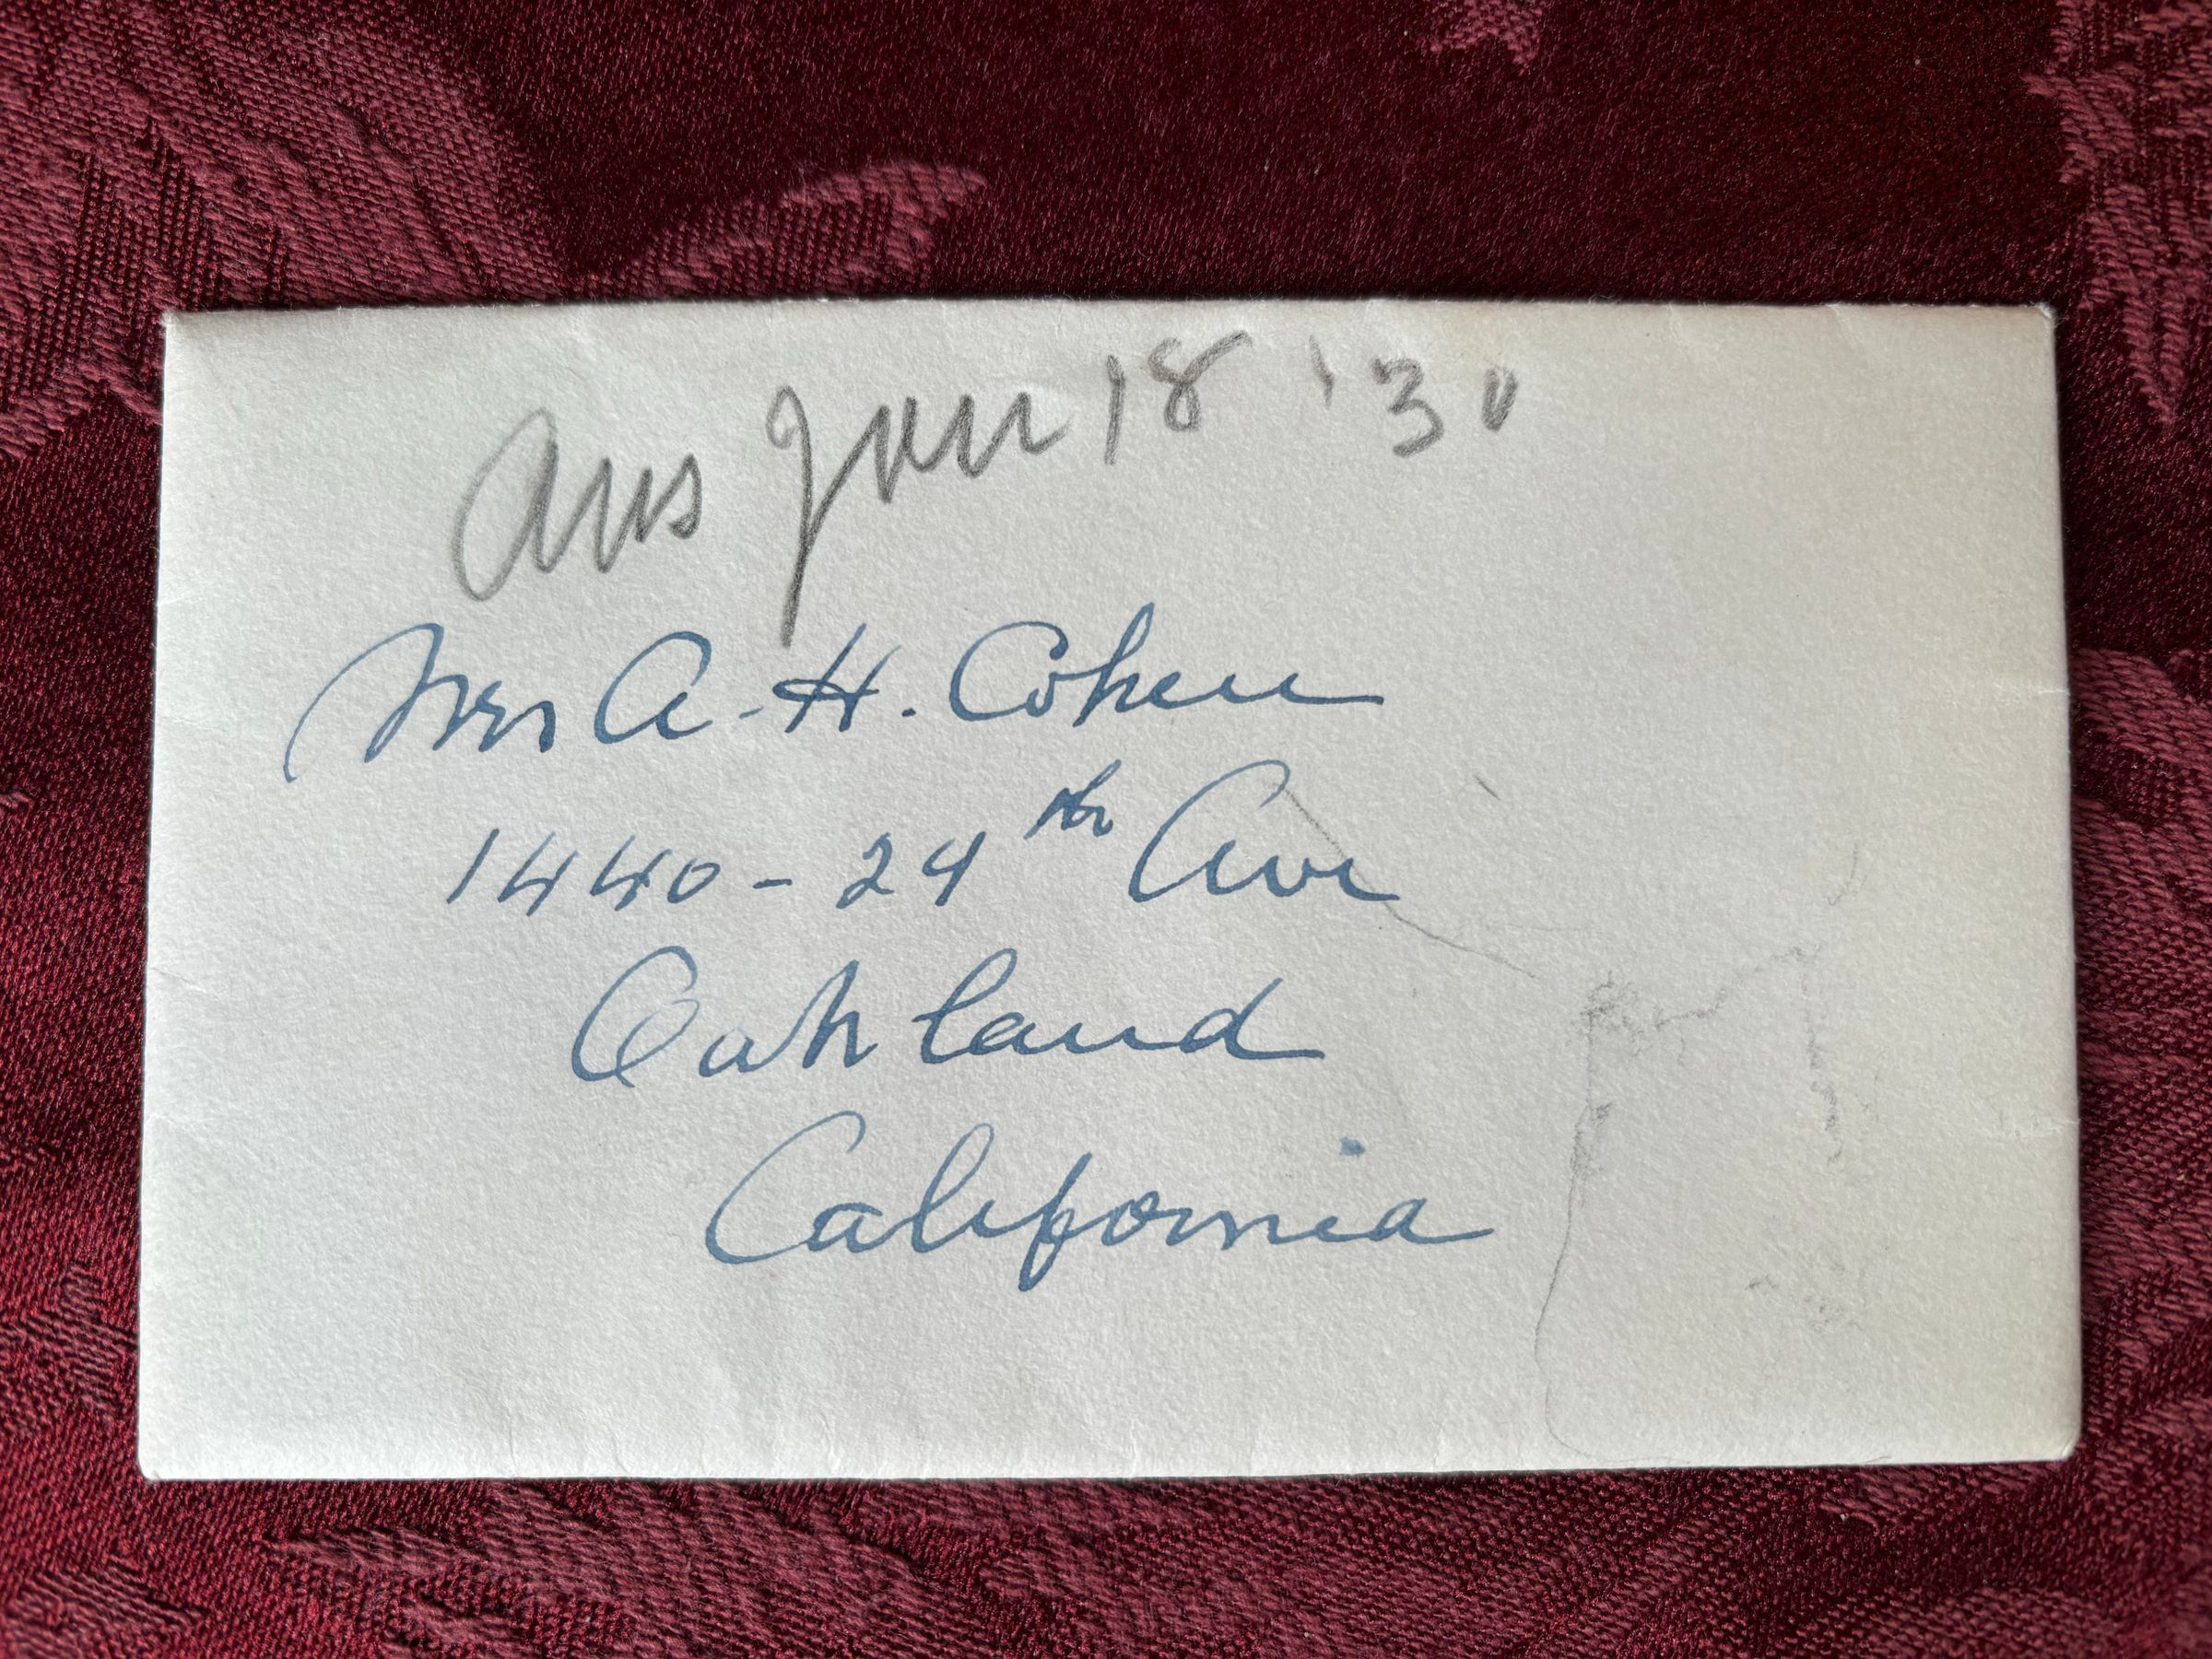 Ans Jan 18 '30
Mrs A. H. Cohen
1440 - 24th Ave
Oakland
California